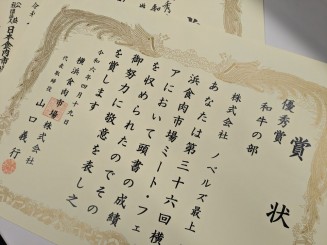 賞状
優秀賞
和牛の部
株式会社 ノベルズ最上
あなたは第三十六回横
浜食肉市場ミート・フェ
アにおいて頭書の成績
を収められたのでその
御努力に敬意を表し之
を賞します
令和六年四月十九日
横浜食肉市場株式会社
代表取締役 山口義行
日本食肉市